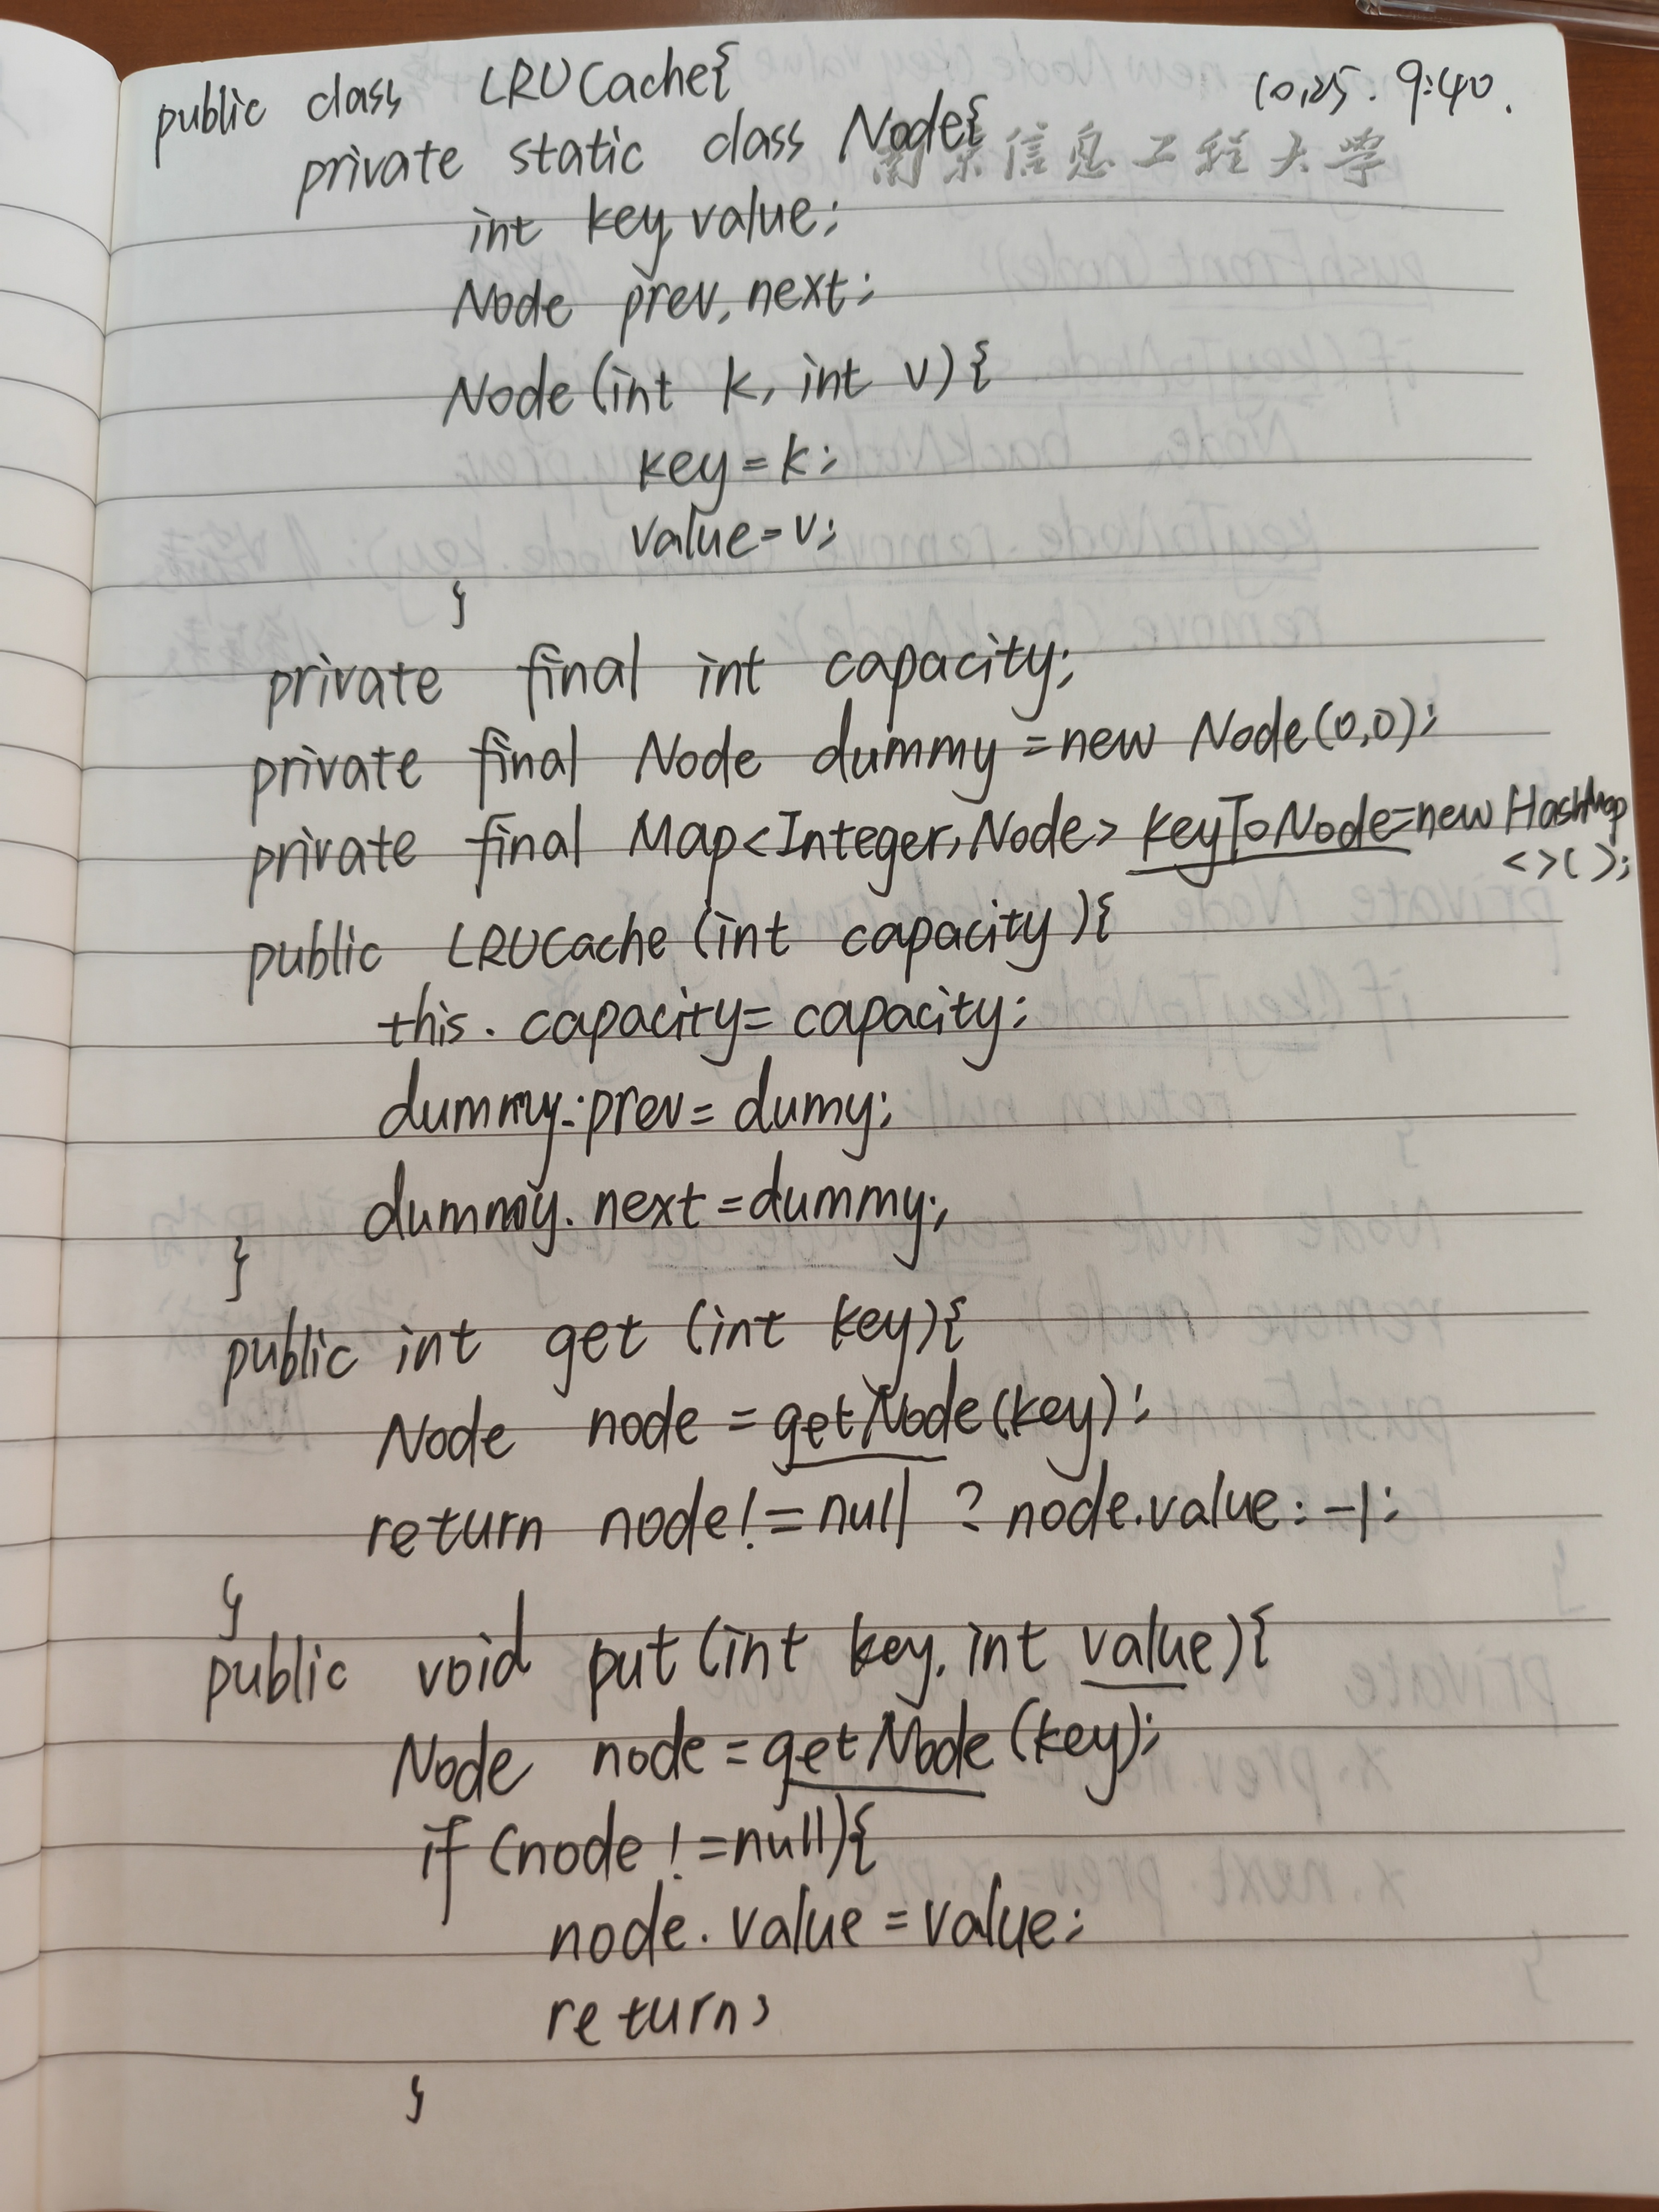 public class LRUCache{
10.25. 9:40.
南京信息工程大学
private static class Node{
int key, value;
Node prev, next;
Node (int k, int v){
key = k;
value = v;
}
private final int capacity;
private final Node dummy = new Node(0,0);
private final Map<Integer, Node> keyToNode = new HashMap
<>();
public LRUCache (int capacity){
this. capacity = capacity;
dummy.prev = dumy;
dummy. next = dummy;
}
public int get (int key){
Node node = getNode(key);
return node != null ? node.value : -1;
}
public void put (int key, int value){
Node node = getNode (key);
if (node != null){
node. value = value;
return;
}